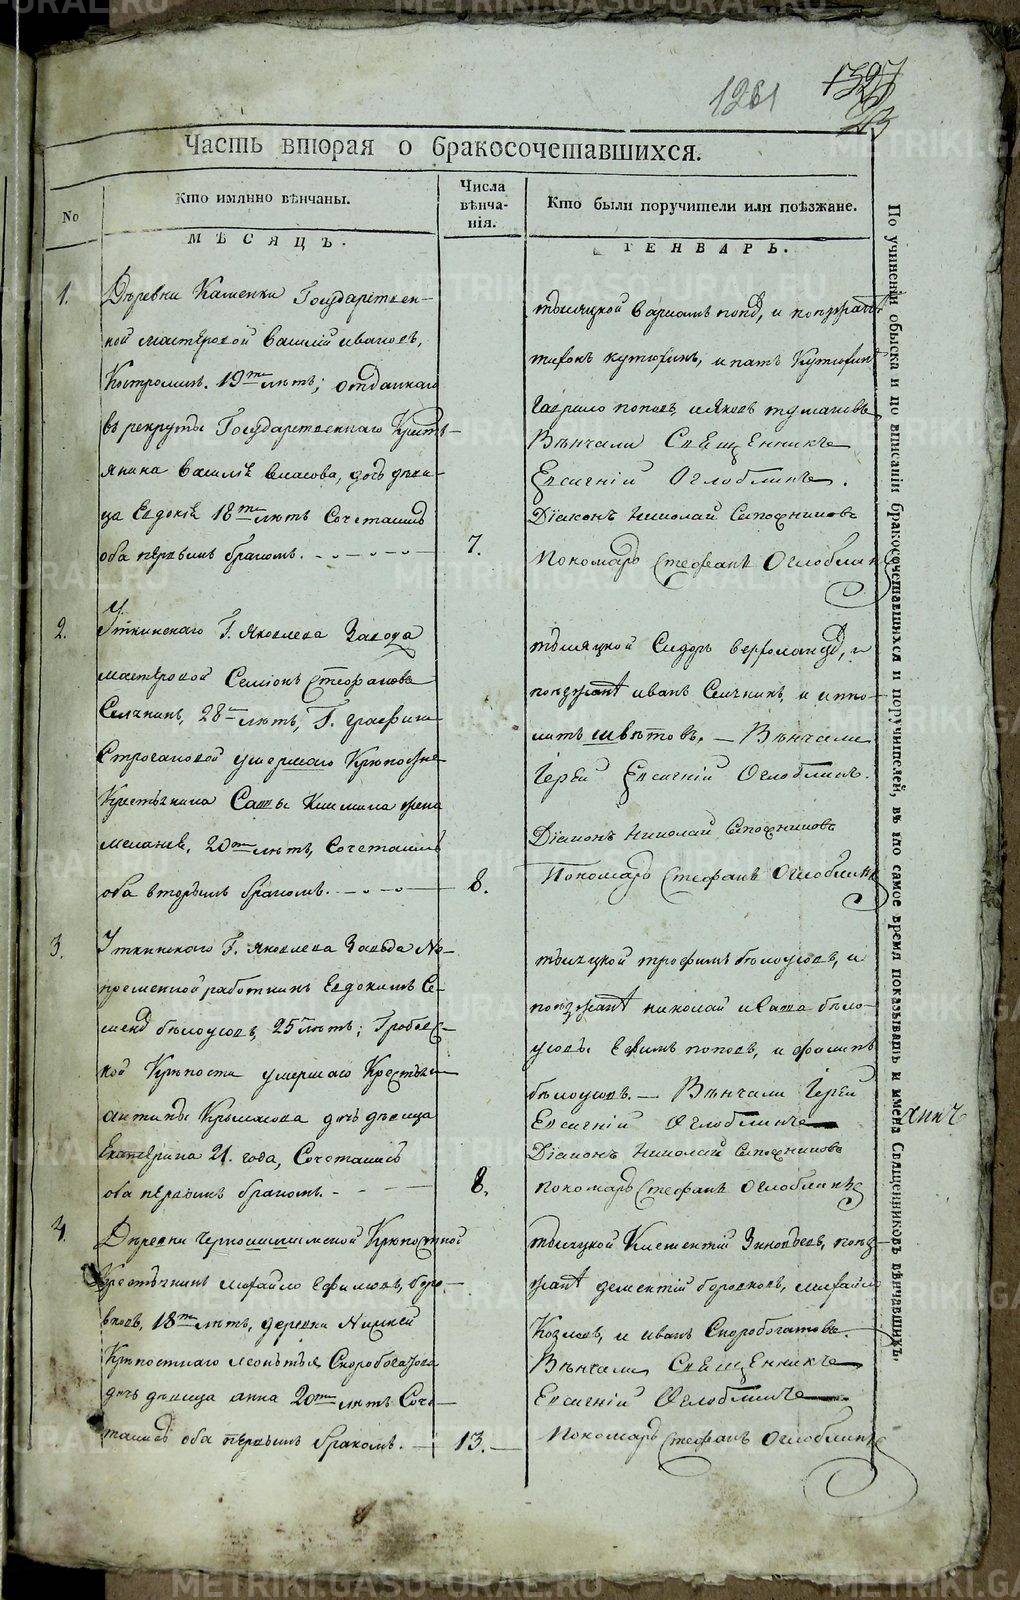 1261
1327
23
Часть вторая о бракосочетавшихся.
No
Кто имянно вѣнчаны.
Числа вѣнча-нія.
Кто были поручители или поѣзжане.
МѢСЯЦЪ.
ГЕНВАРЬ.
1.
Деревни Каменки Государствен-
ной мастеровой Василий Ивановъ,
Костроминъ. 19ти лѣтъ; отданнаго
въ рекруты Государственнаго Кресть-
янина Василія Власова, дочь дѣви-
ца Евдокія 18ти лѣтъ Сочетались
оба первымъ бракомъ.
7.
тысяцкой Варламъ поп, и поезжанѣ
тифонъ кутюхинъ, ипатъ Кутюхинъ
Гаврило поповъ иЯковъ тумановъ
Вѣнчали Священникъ
Евсигній Оглоблинъ.
Діаконъ Николай Сапожниковъ
Пономарь Стефанъ Оглоблинъ
2.
Уткинскаго Г. Яковлева Завода
мастеровой Семіонъ Стефановъ
Селчнинъ, 28 лѣтъ, Г. Графини
Строгановой умершаго Крепостна
Крестьянина Савы жена
меланія, 20ти лѣтъ, Сочетались
оба вторымъ бракомъ.
8.
тысяцкой Сидоръ, и
поезжанѣ иванъ Селчнинъ, и иппо-
литъ швѣтовъ. — Вѣнчали
Іерей Евсигній Оглоблинъ.
Діаконъ Николай Сапожниковъ
Пономарь Стефанъ Оглоблинъ
3.
Уткинскаго Г. Яковлева Завода Не-
пременной работникъ Евдокимъ Се-
менов бѣлоусовъ, 25 лѣтъ; Гробовс-
кой Крѣпости умершаго Крестья-
антипы дочь дѣвица
Екатерина 21. года, Сочетались
оба первымъ бракомъ.
8.
тысяцкой трофимъ бѣлоусовъ, и
поезжанѣ николай иСава бѣло-
усовы Ефимъ поповъ, и
бѣлоусовъ. — Вѣнчали Іерей
Евсигній Оглоблинъ
Діаконъ Николай Сапожниковъ
пономарь Стефанъ Оглоблинъ
4.
Деревни Черношишимской Крѣпостной
Крестьянинъ михайло Ефимовъ, боро-
вковъ, 18ти лѣтъ, деревни Нижней
Крѣпостнаго леонтья Скоробогатова
дочь дѣвица анна 20ти лѣтъ Соче-
тались оба первымъ бракомъ.
13.
тысяцкой Климентій Зиновьевъ, поез-
жанѣ дементій боровковъ, михайло
Козловъ, и иванъ Скоробогатовъ.
Вѣнчали Священникъ
Евсигній Оглоблинъ
Пономарь Стефанъ Оглоблинъ
По учиненіи обыска и по вписаніи бракосочетавшихся и поручителей, въ то самое время показывать и имена Священниковъ вѣнчавшихъ.